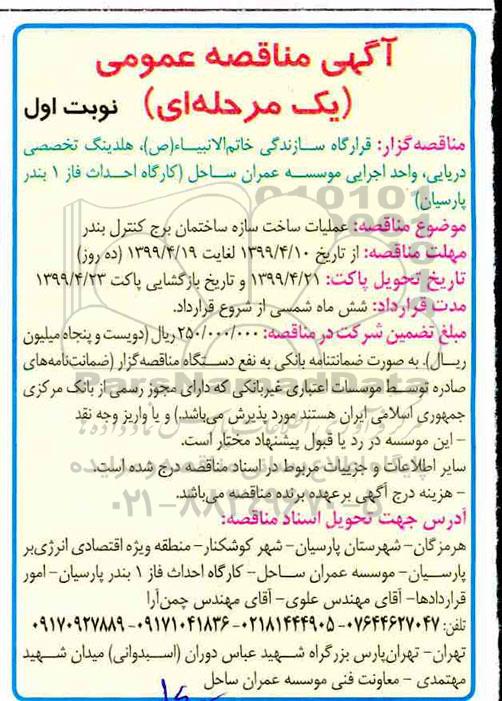 آگهی مناقصه عمومی
(یک مرحله‌ای) نوبت اول
مناقصه‌گزار: قرارگاه سازندگی خاتم‌الانبیاء(ص)، هلدینگ تخصصی
دریایی، واحد اجرایی موسسه عمران ساحل (کارگاه احداث فاز ۱ بندر
پارسیان)
موضوع مناقصه: عملیات ساخت سازه ساختمان برج کنترل بندر
مهلت مناقصه: از تاریخ ۱۳۹۹/۴/۱۰ لغایت ۱۳۹۹/۴/۱۹ (ده روز)
تاریخ تحویل پاکت: ۱۳۹۹/۴/۲۱ و تاریخ بازگشایی پاکت ۱۳۹۹/۴/۲۳
مدت قرارداد: شش ماه شمسی از شروع قرارداد.
مبلغ تضمین شرکت در مناقصه: ۲۵۰/۰۰۰/۰۰۰ ریال (دویست و پنجاه میلیون
ریال). به صورت ضمانتنامه بانکی به نفع دستگاه مناقصه‌گزار (ضمانت‌نامه‌های
صادره توسط موسسات اعتباری غیربانکی که دارای مجوز رسمی از بانک مرکزی
جمهوری اسلامی ایران هستند مورد پذیرش می‌باشد.) و یا واریز وجه نقد
- این موسسه در رد یا قبول پیشنهاد مختار است.
سایر اطلاعات و جزییات مربوط در اسناد مناقصه درج شده است.
- هزینه درج آگهی برعهده برنده مناقصه می‌باشد.
۰۲۱-۸۸۳۴۹۶۷۰-۵
آدرس جهت تحویل اسناد مناقصه:
هرمزگان- شهرستان پارسیان- شهر کوشکنار- منطقه ویژه اقتصادی انرژی‌بر
پارسیان- موسسه عمران ساحل- کارگاه احداث فاز ۱ بندر پارسیان- امور
قراردادها- آقای مهندس علوی- آقای مهندس چمن‌آرا
تلفن: ۰۷۶۴۴۶۲۷۰۴۷- ۰۲۱۸۱۴۴۴۹۰۵- ۰۹۱۷۱۰۴۱۸۳۶- ۰۹۱۷۰۹۲۷۸۸۹
تهران- تهران‌پارس بزرگراه شهید عباس دوران (اسبدوانی) میدان شهید
مهتمدی - معاونت فنی موسسه عمران ساحل